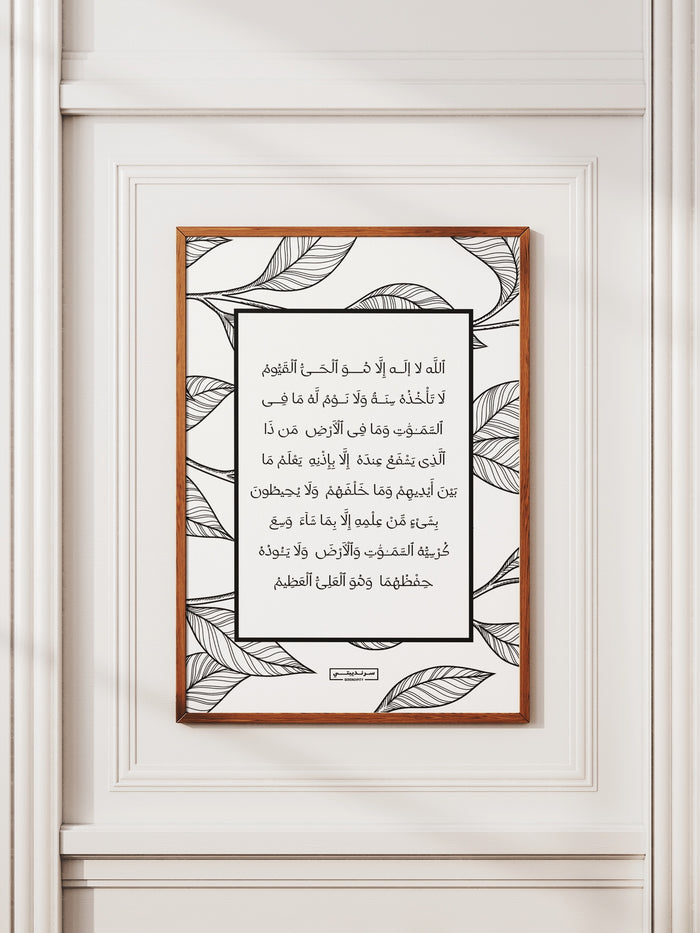 ٱللَّه لا إلَـٰه إِلَّا هُـــوَ ٱلْحَــىُّ ٱلْقَيُّومُ
لَا تَأْخُذُهُ سِنَــةٌ وَلَا نَــوْمٌ لَّهُ مَا فِـــى
ٱلسَّمَـٰوَٰتِ وَمَا فِى ٱلْأَرْضِ مَن ذَا
ٱلَّذِى يَشْفَعُ عِندَهُ إِلَّا بِإِذْنِهِ يَعْلَمُ مَا
بَيْنَ أَيْدِيهِمْ وَمَا خَلْفَهُمْ وَلَا يُحِيطُونَ
بِشَىْءٍ مِّنْ عِلْمِهِ إِلَّا بِمَا شَآءَ وَسِعَ
كُرْسِيُّهُ ٱلسَّمَـٰوَٰتِ وَٱلْأَرْضَ وَلَا يَـُٔودُهُ
حِفْظُهُمَا وَهُوَ ٱلْعَلِىُّ ٱلْعَظِيمُ
سرنديبتي
SERENDIPITY